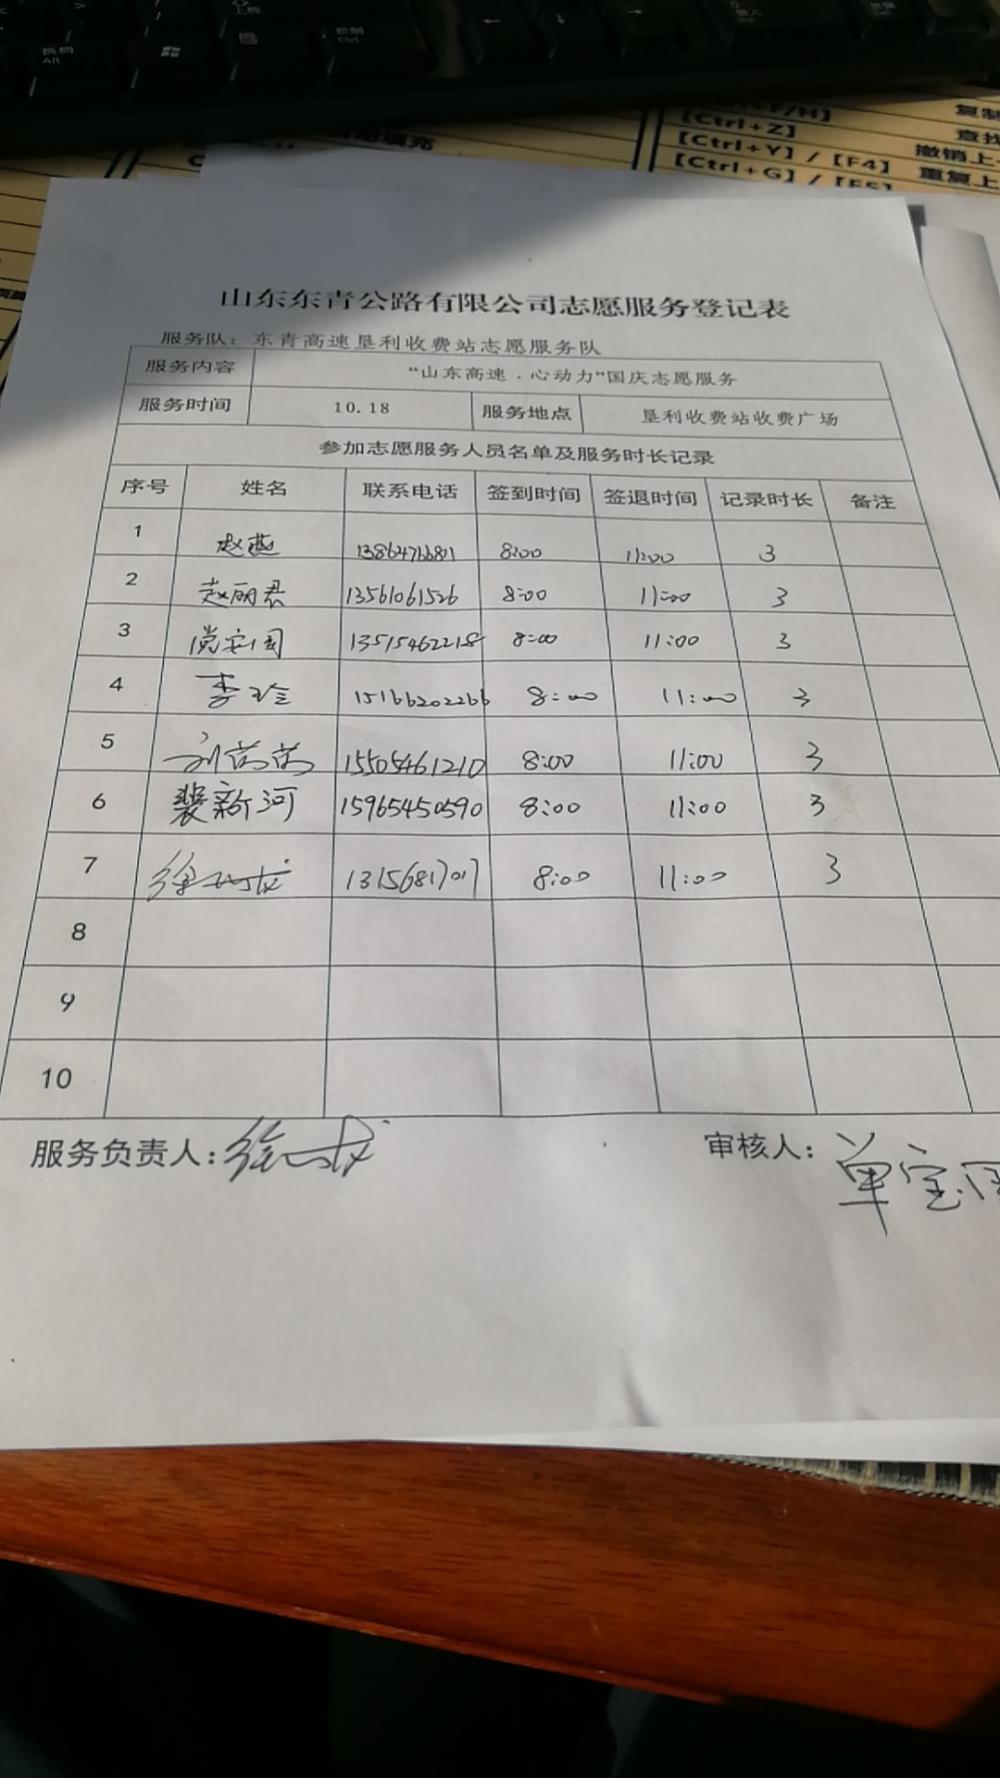 控制
Ctrl
换档
Alt
【Ctrl+Z】
【Ctrl+Y】/【F4】 撤销上
【Ctrl+G】/【F5】 重复上
复制
查找
山东东青公路有限公司志愿服务登记表
服务队：东青高速垦利收费站志愿服务队
服务内容 “山东高速．心动力”国庆志愿服务
服务时间 10.18 服务地点 垦利收费站收费广场
参加志愿服务人员名单及服务时长记录
序号 姓名 联系电话 签到时间 签退时间 记录时长 备注
1 赵燕 8:00 11:00 3
2 赵丽君 13561061526 8:00 11:00 3
3 党安国 13515462218 8:00 11:00 3
4 李玲 15166202266 8:00 11:00 3
5 刘芮芮 15505461210 8:00 11:00 3
6 裴新河 15965450590 8:00 11:00 3
7 徐 8:00 11:00 3
8
9
10
服务负责人：徐
审核人：单宝国